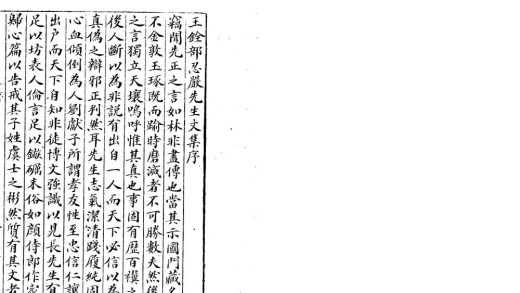 王銓部忍嚴先生文集序
竊聞先正之言如林非盡傳也當其示國門藏名
不金敦玉琢旣而踰時磨滅者不可勝數夫然後
之言獨立天壤嗚呼惟其真也事固有歷百禩之
後人斷以為非說有出自一人而天下必信以為
真偽之辯邪正判然耳先生志氣潔清踐履純固
心血傾倒為人劉獻子所謂孝友性至忠信仁讓
出戶而天下自知非徒博文強識以見長先生有
足以坊表人倫言足以鍼礪末俗如顏侍郎作家
歸心篇以告戒其子姓虞士之彬然質有其文者